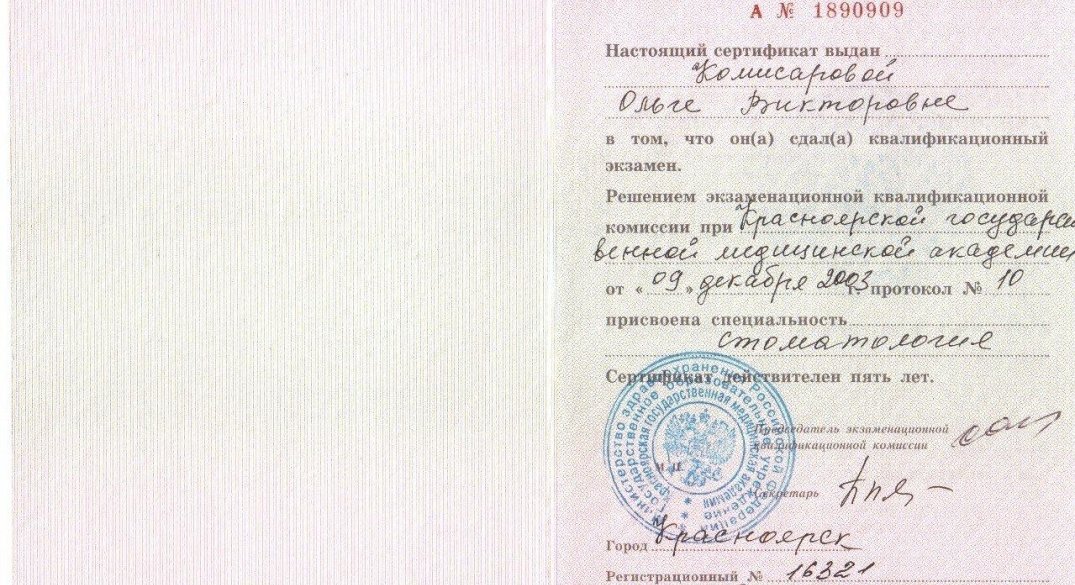 А № 1890909
Настоящий сертификат выдан
Комисаровой
Ольге Викторовне
в том, что он(а) сдал(а) квалификационный
экзамен.
Решением экзаменационной квалификационной
комиссии при Красноярской государст
венной медицинской академии
от « 09 » декабря 2003 г. протокол № 10
присвоена специальность
стоматология
Сертификат действителен пять лет.
Председатель экзаменационной
квалификационной комиссии
М. П.
Секретарь
Город Красноярск
Регистрационный № 16321
Министерство здравоохранения Российской Федерации
Государственное образовательное учреждение
Красноярская государственная медицинская академия